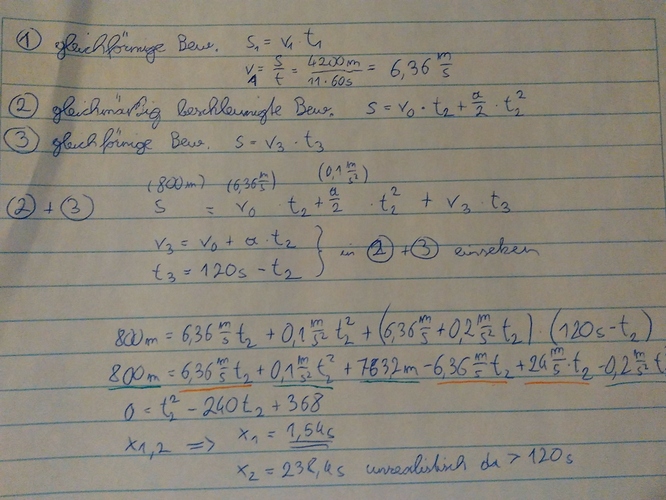 ① gleichförmige Bew. s₁ = v₁ · t₁
v₁ = s/t = 4200m/11·60s = 6,36 m/s
② gleichmäßig beschleunigte Bew. s = v₀ · t₂ + a/2 · t₂²
③ gleichförmige Bew. s = v₃ · t₃
(800m) (6,36 m/s) (0,1 m/s²)
②+③ s = v₀ · t₂ + a/2 · t₂² + v₃ · t₃
v₃ = v₀ + a · t₂
t₃ = 120s - t₂ } in ②+③ einsetzen
800m = 6,36 m/s t₂ + 0,1 m/s² t₂² + (6,36 m/s + 0,2 m/s² t₂) · (120s - t₂)
800m = 6,36 m/s t₂ + 0,1 m/s² t₂² + 7632m - 6,36 m/s t₂ + 24 m/s · t₂ - 0,2 m/s² t
0 = t₂² - 240t₂ + 368
x₁,₂ => x₁ = 1,54s
x₂ = 238,4s unrealistisch da > 120s